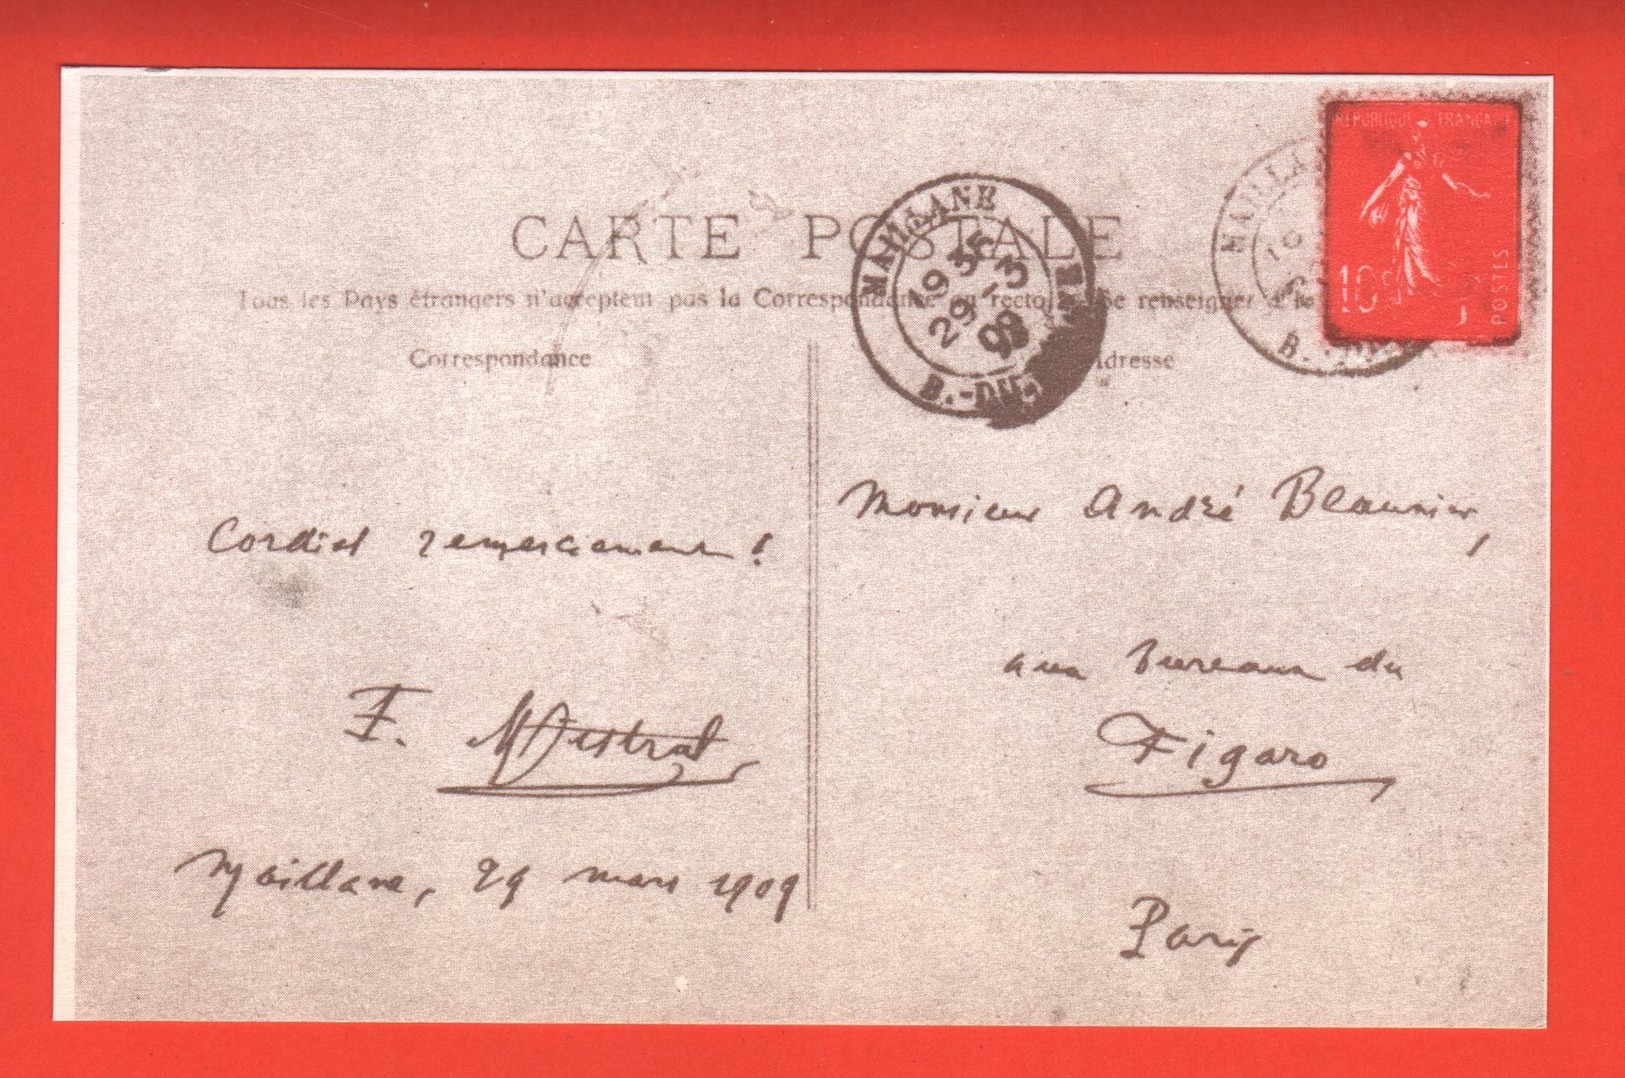 RÉPUBLIQUE FRANÇAISE
10c
POSTES
CARTE POSTALE
Tous les Pays étrangers n'acceptent pas la Correspondance au recto. Se renseigner à la
Correspondance
Adresse
MAILLANE
19 35
29 - 3
09
B.-DU-
MAILLA
B.-DU-
Cordial remerciement !
F. Mistral
Maillane, 29 mars 1909
Monsieur André Beaunier,
aux bureaux du
Figaro
Paris